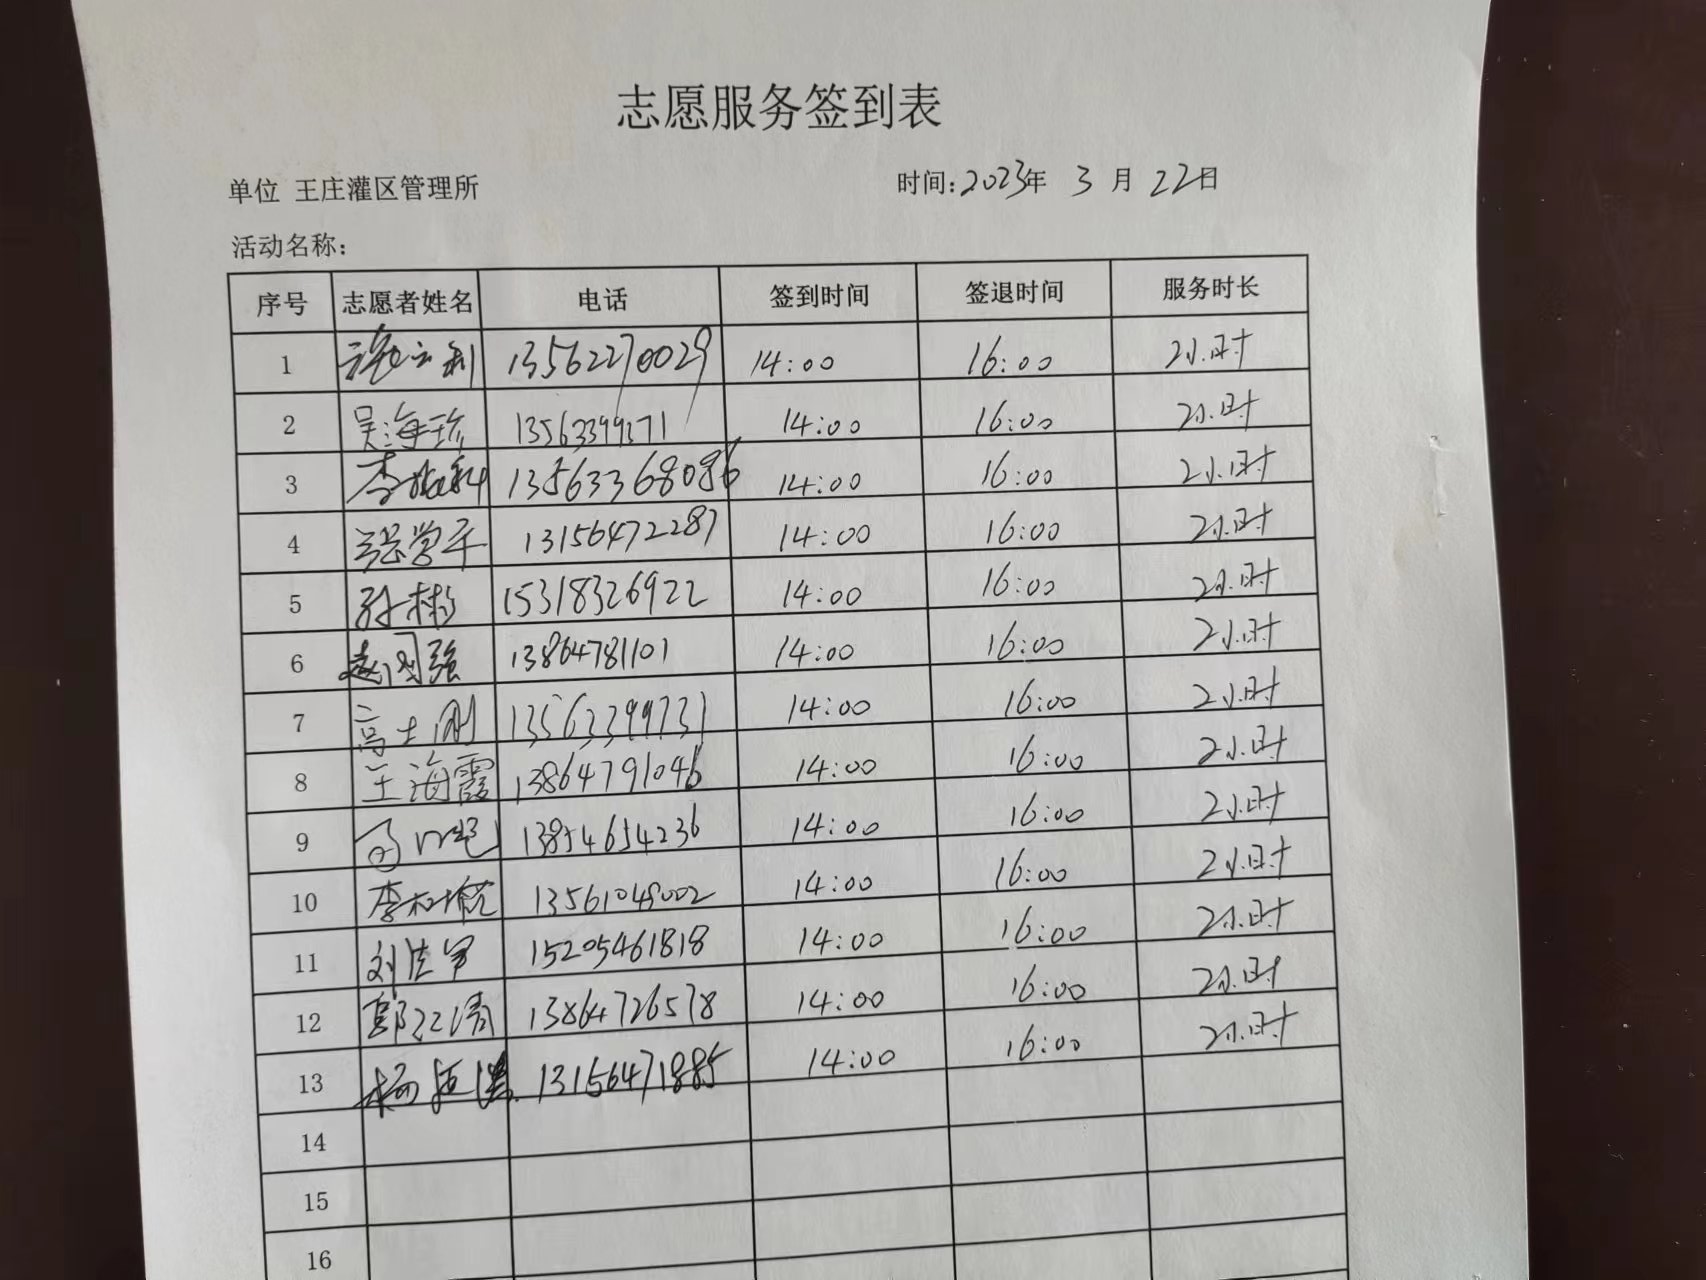 志愿服务签到表
单位 王庄灌区管理所 时间:2023年 3 月 22日
活动名称:
序号 志愿者姓名 电话 签到时间 签退时间 服务时长
1 13562270029 14:00 16:00 2小时
2 吴海珍 13563399371 14:00 16:00 2小时
3 李 13563368086 14:00 16:00 2小时
4 张学平 13156472287 14:00 16:00 2小时
5 孙彬 15318326922 14:00 16:00 2小时
6 赵国强 13864781101 14:00 16:00 2小时
7 高士刚 13563399731 14:00 16:00 2小时
8 王海霞 13864791046 14:00 16:00 2小时
9 13854654236 14:00 16:00 2小时
10 李 13561048002 14:00 16:00 2小时
11 刘 15205461818 14:00 16:00 2小时
12 郭江涛 13864726578 14:00 16:00 2小时
13 杨 13156471885 14:00 16:00 2小时
14
15
16